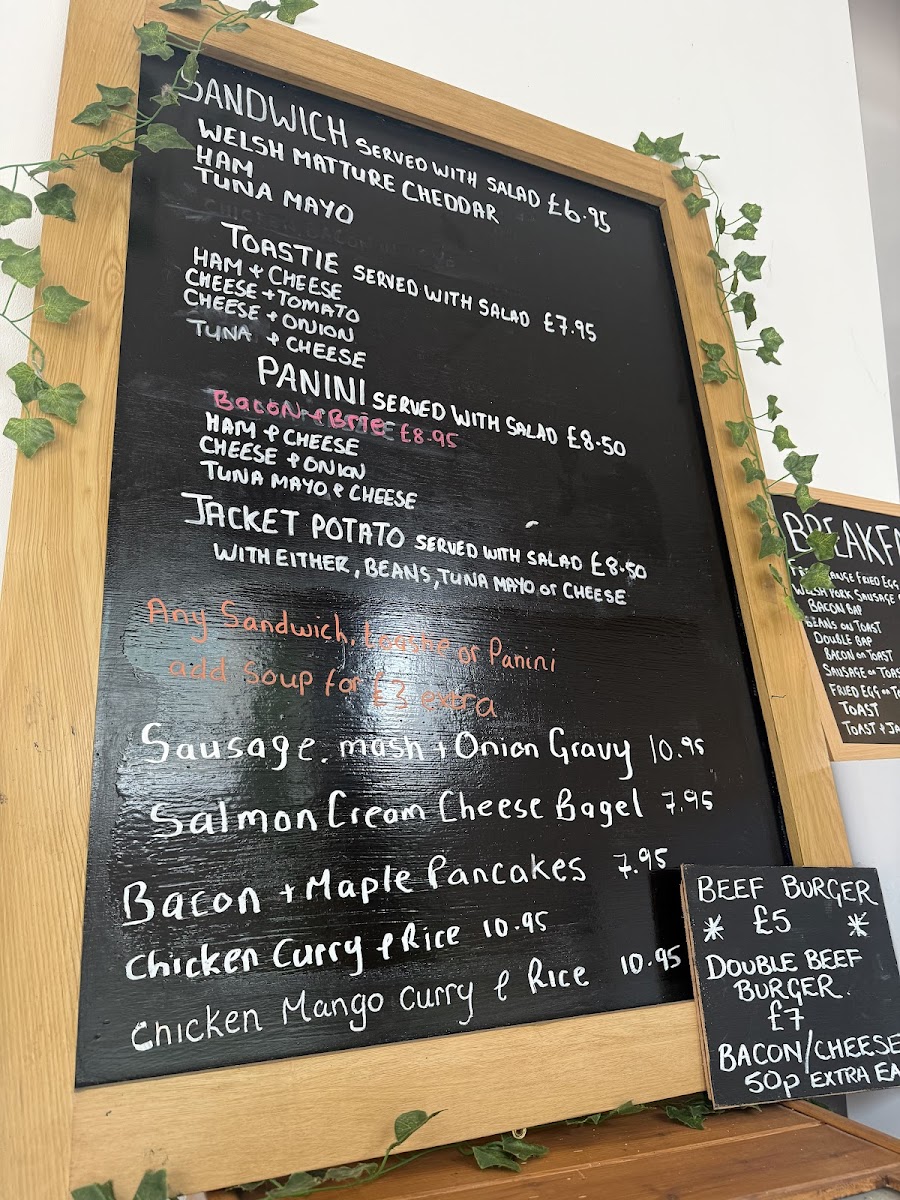 SANDWICH SERVED WITH SALAD £6.95
WELSH MATTURE CHEDDAR
HAM
TUNA MAYO
TOASTIE SERVED WITH SALAD £7.95
HAM & CHEESE
CHEESE + TOMATO
CHEESE + ONION
TUNA & CHEESE
PANINI SERVED WITH SALAD £8.50
BACON & BRIE £8.95
HAM & CHEESE
CHEESE & ONION
TUNA MAYO & CHEESE
JACKET POTATO SERVED WITH SALAD £8.50
WITH EITHER, BEANS, TUNA MAYO or CHEESE
Any Sandwich, toastie or Panini
add Soup for £3 extra
Sausage, mash + Onion Gravy 10.95
Salmon Cream Cheese Bagel 7.95
Bacon + Maple Pancakes 7.95
Chicken Curry & Rice 10.95
Chicken Mango Curry & Rice 10.95
BREAKFA
RANGE FRIED EGG
WELSH PORK SAUSAGE
BACON BAP
BEANS ON TOAST
DOUBLE BAP
BACON on TOAST
SAUSAGE on TOAS
FRIED EGG on TO
TOAST
TOAST & JA
BEEF BURGER
* £5 *
DOUBLE BEEF
BURGER.
£7
BACON/CHEESE
50p EXTRA EA